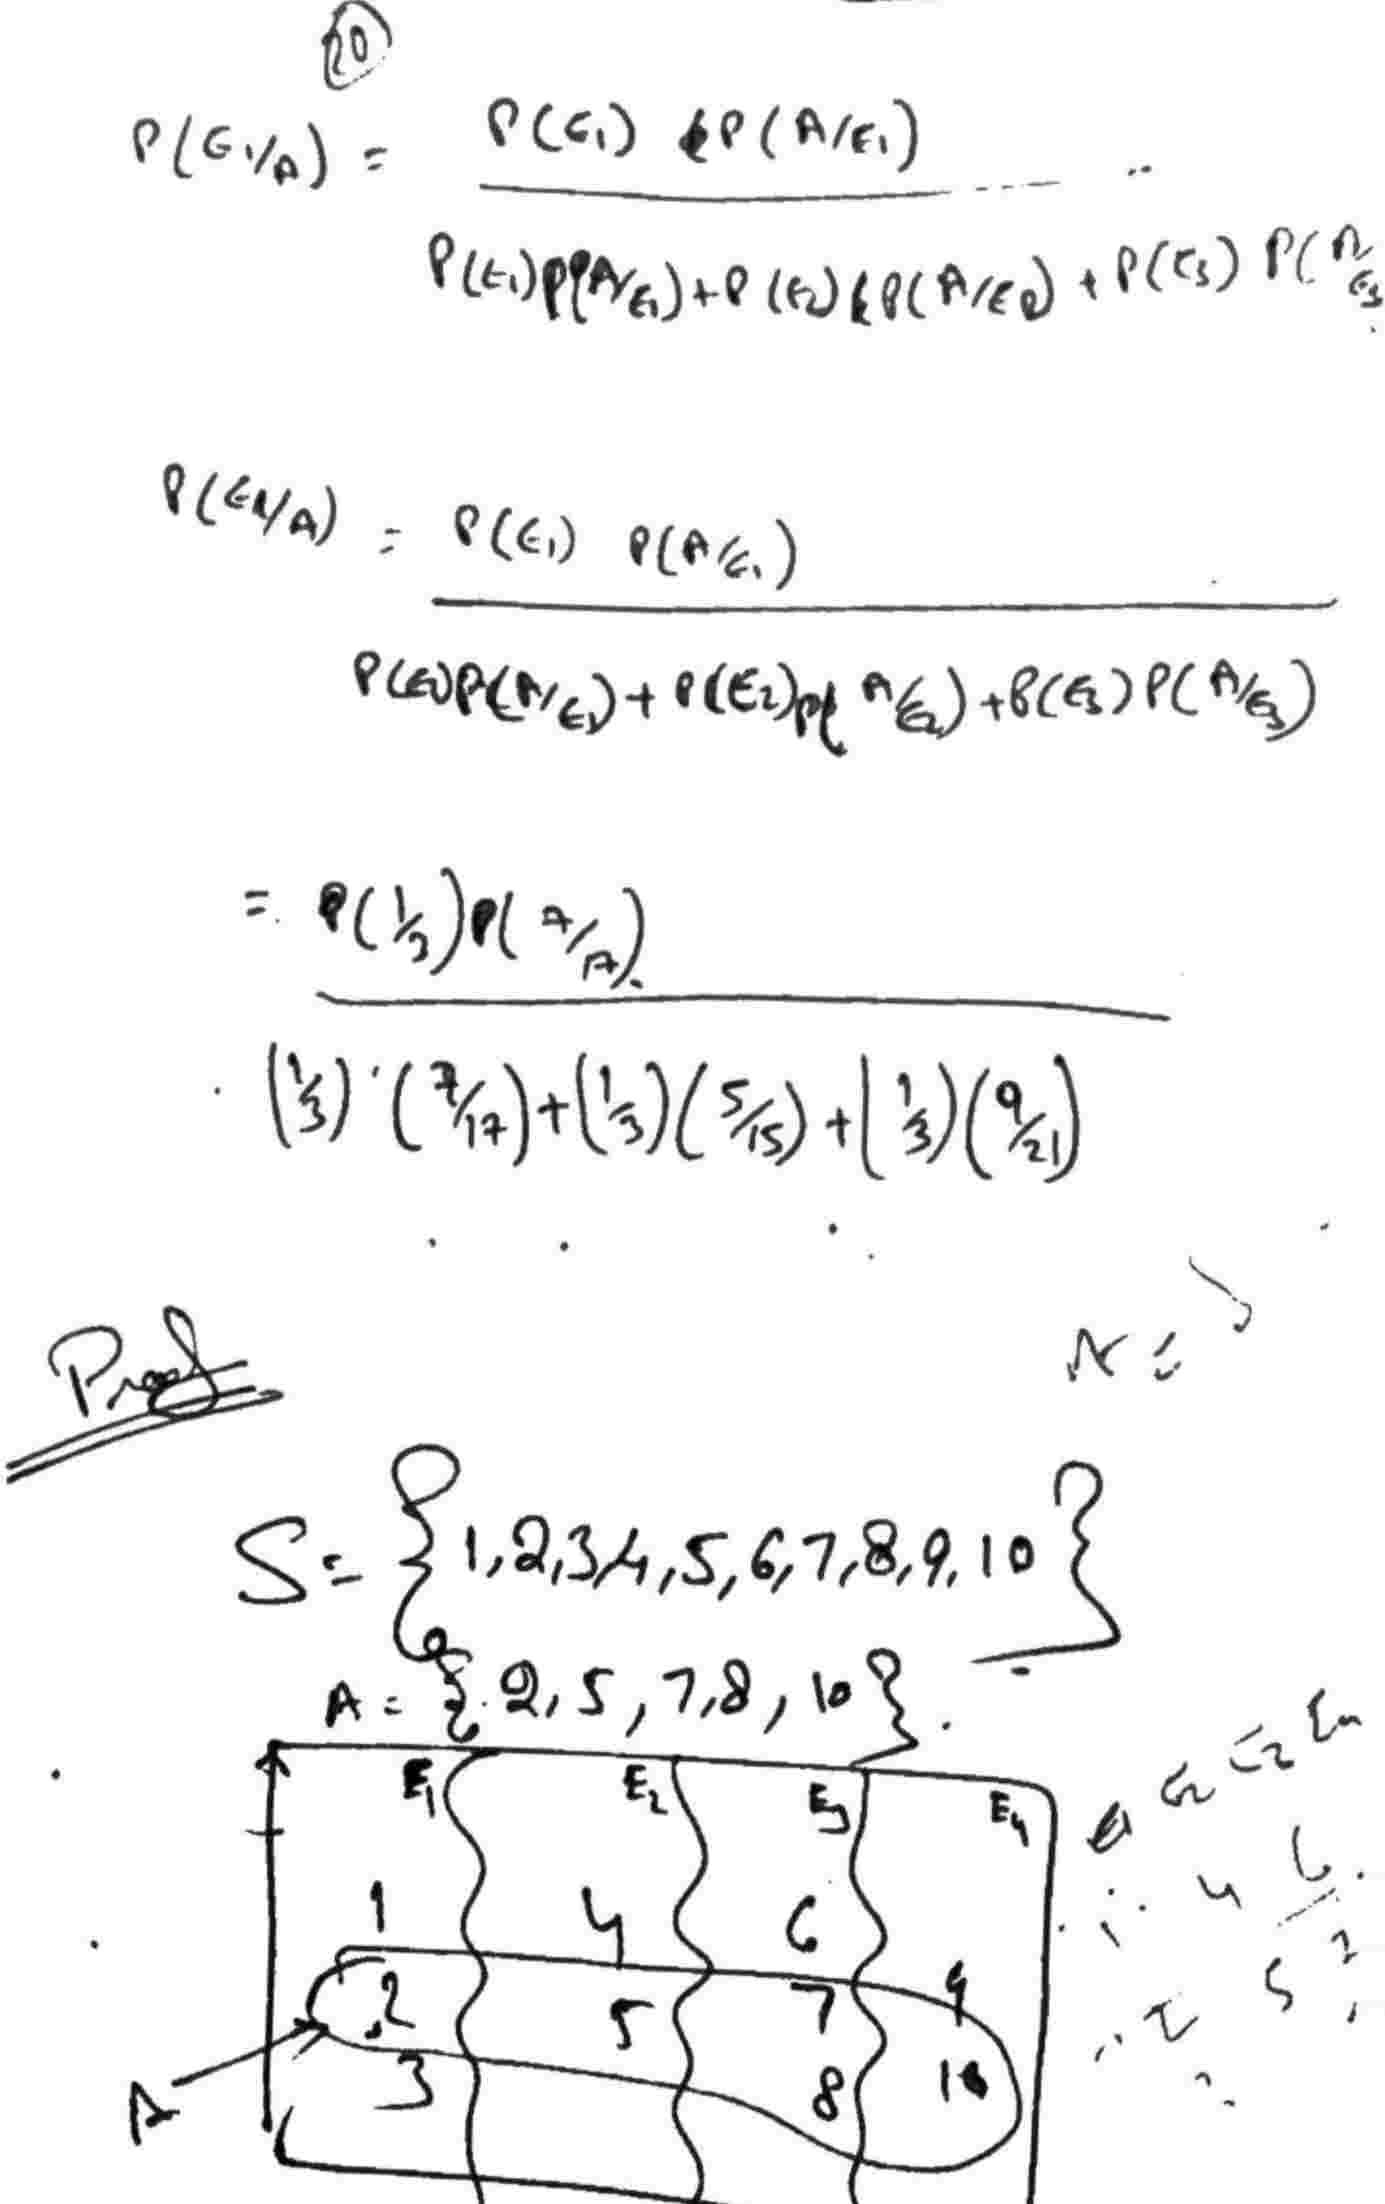 20
P(E1/A) = P(E1) P(A/E1)
P(E1)P(A/E1)+P(E2)P(A/E2)+P(E3)P(A/E3
P(E1/A) = P(E1) P(A/E1)
P(E1)P(A/E1)+P(E2)P(A/E2)+P(E3)P(A/E3)
= P(1/3)P(7/17)
(1/3)·(7/17)+(1/3)(5/15)+(1/3)(9/21)
Proof
S={1,2,3,4,5,6,7,8,9,10}
A={2,5,7,8,10}
E1 E2 E3 E4
1 4 6
2 5 7 9
3 8 10
A